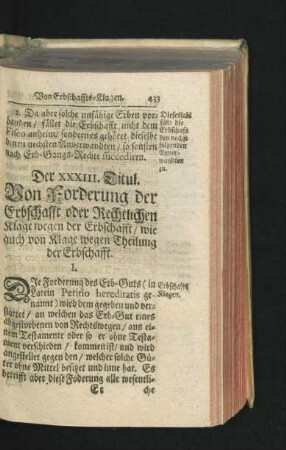 Von Erbschaffts-Klagen. 433
2. Da aber solche unfähige Erben vor-
handen / fället die Erbschafft nicht dem
Fisco anheim / sondern es gehöret dieselbe
denen nechsten Anverwandten / so sonsten
nach Erb-Gangs-Rechte succediren.
Diesesfals
fällt die
Erbschafft
den nechst
folgenden
Anver-
wandten
zu.
Der XXXIII. Titul.
Von Forderung der
Erbschafft oder Rechtlichen
Klage wegen der Erbschafft / wie
auch von Klage wegen Theilung
der Erbschafft.
1.
DIe Forderung des Erb-Guts (in
Latein Petitio hereditatis ge-
nannt) wird dem gegeben und ver-
stattet / an welchen das Erb-Gut eines
abgestorbenen von Rechtswegen / aus ei-
nem Testamente oder so er ohne Testa-
ment verschieden / kommen ist / und wird
angestellet gegen den / welcher solche Gü-
ter ohne Mittel besitzet und inne hat. Es
betrifft aber diese Foderung alle wesentli-
Erbschaffts
Klagen.
Ee che